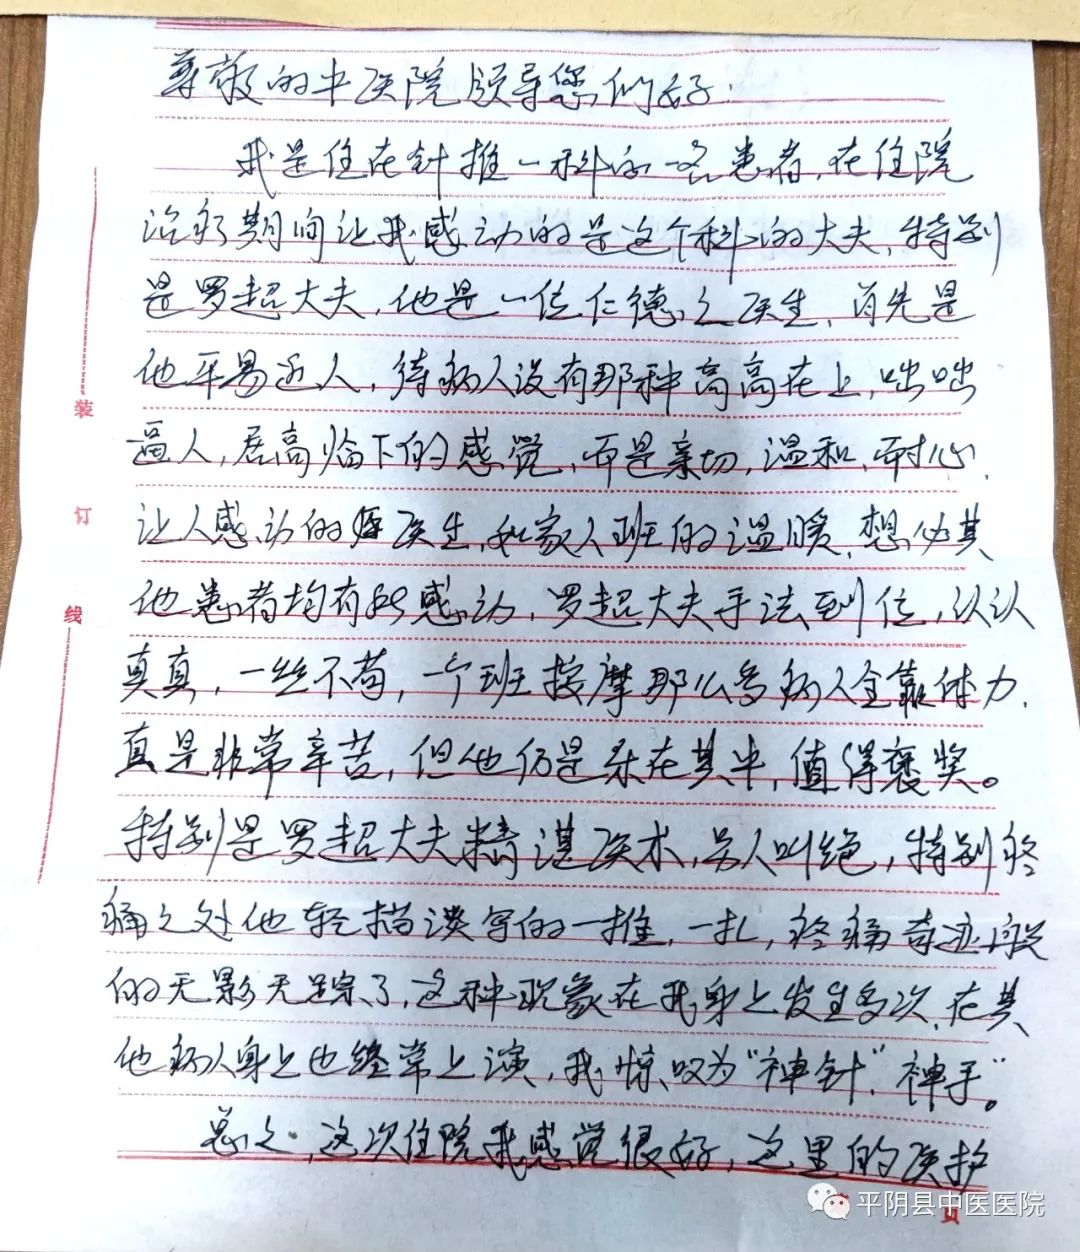 尊敬的中医院领导您们好:
我是住在针推一科的一名患者,在住院
治疗期间让我感动的是这个科的大夫,特别
是罗超大夫,他是一位仁德之医生,首先是
他平易近人,待病人没有那种高高在上,咄咄
逼人,居高临下的感觉,而是亲切,温和,耐心,
让人感动的医生,如家人班的温暖,想必其
他患者均有所感动,罗超大夫手法到位,认认
真真,一丝不苟,一个班按摩那么多病人全靠体力,
真是非常辛苦,但他仍是乐在其中,值得褒奖。
特别是罗超大夫精湛医术,另人叫绝,特别疼
痛之处他轻描淡写的一推,一扎,疼痛奇迹般
的无影无踪了,这种现象在我身上发生多次,在其
他病人身上也经常上演,我惊叹为"神针","神手"。
总之,这次住院我感觉很好,这里的医护
装
订
线
平阴县中医医院
页